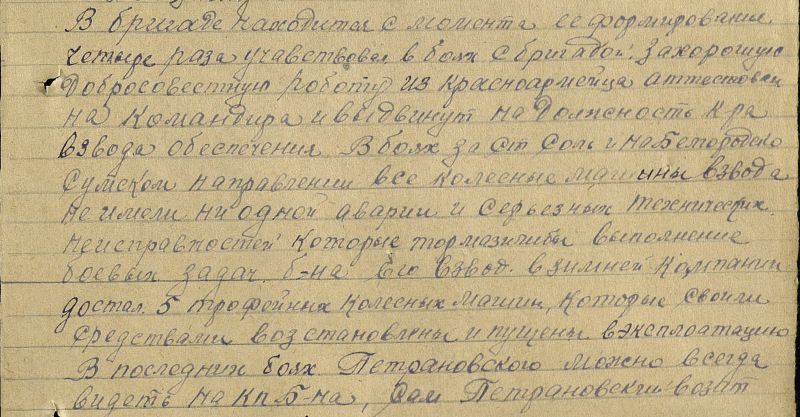 В бригаде находится с момента ее формирования
четыре раза учавствовал в боях с бригадой. За хорошую
добросовестную роботу из красноармейца аттестован
на командира и выдвинут на должность к-ра
взвода обеспечения. В боях за ст Соль и на Белгородско
Сумском направлении все колесные машины взвода
не имели ни одной аварии и серьезных технических
неисправностей которые тормазили бы выполнение
боевых задач б-на. Его взвод в зимней компании
достал 5 трофейных колесных машин, которые своими
средствами возстановлены и пущены в эксплоатацию
В последних боях Петрановского можно всегда
видеть на КП Б-на, сам Петрановский возит